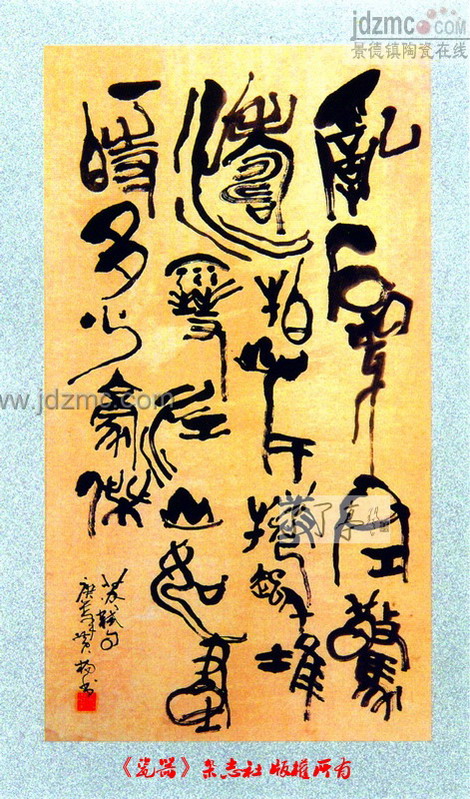 jdzmc.com
景德镇陶瓷在线
亂石穿空驚
濤拍岸捲起千堆
雪江山如畫
一時多少豪傑
蘇軾句
www.jdzmc.com
《瓷器》杂志社 版权所有